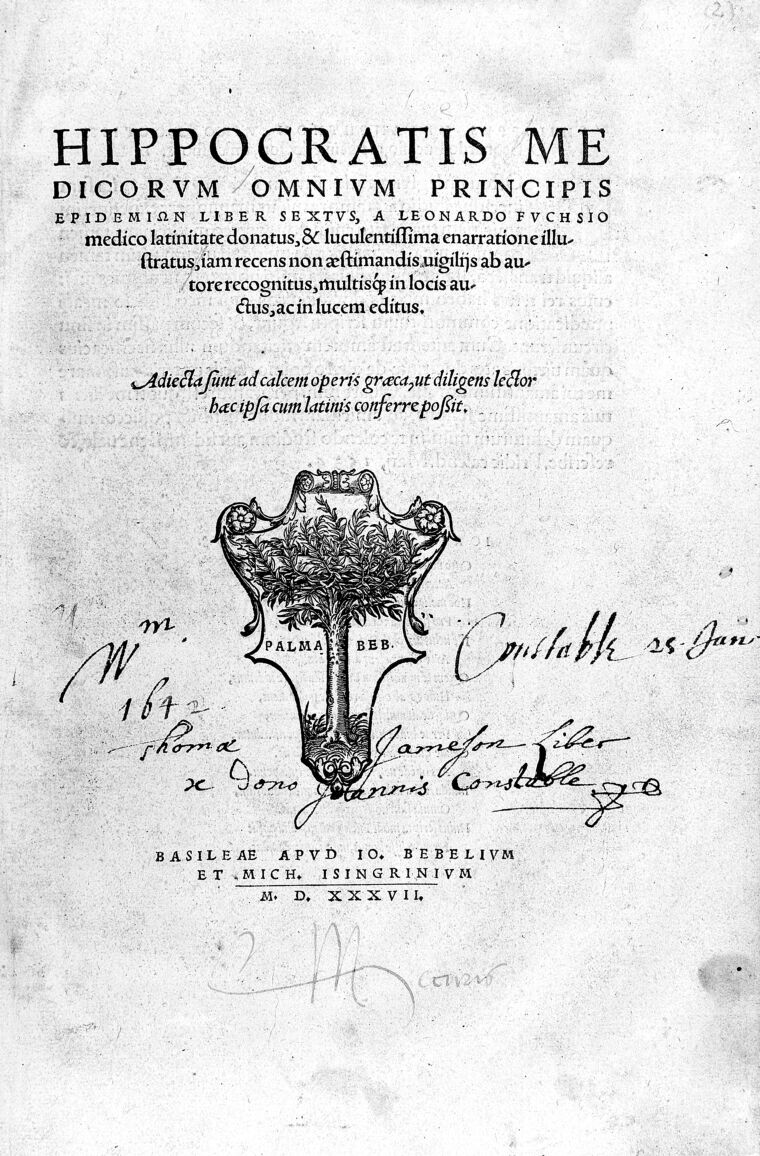 (2)
HIPPOCRATIS ME
DICORVM OMNIVM PRINCIPIS
EPIDEMIΩN LIBER SEXTVS, A LEONARDO FVCHSIO
medico latinitate donatus, & luculentissima enarratione illu-
stratus, iam recens non æstimandis uigilijs ab au-
tore recognitus, multisq́; in locis au-
ctus, ac in lucem editus.
Adiecta sunt ad calcem operis græca, ut diligens lector
hæc ipsa cum latinis conferre possit.
PALMA BEB.
Wm. Constable 25. Jan.
1642
Thomæ Jameson Liber
ex dono Johannis Constable
BASILEAE APVD IO. BEBELIVM
ET MICH. ISINGRINIVM
M. D. XXXVII.